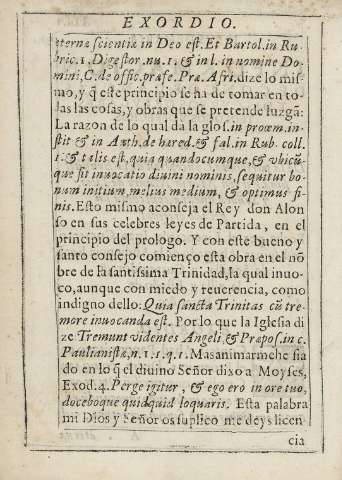 EXORDIO.
eternæ scientiæ in Deo est. Et Bartol. in Ru
bric. 1. Digestor. nu. 1. & in l. in nomine Do
mini, C. de offic. præfe. Præ. Afri. dize lo mis
mo, y q̃ este principio se ha de tomar en to
las las cosas, y obras que se pretende luzgã:
La razon de lo qual da la glos. in proœm. in-
stit & in Auth. de hæred. & fal. in Rub. coll.
1. & talis est, quia quandocumque, & vbicũ-
que fit inuocatio diuini nominis, sequitur bo-
num initium, melius medium, & optimus fi-
nis. Esto mismo aconseja el Rey don Alon
so en sus celebres leyes de Partida, en el
principio del prologo. Y con este bueno y
santo consejo comienço esta obra en el nõ
bre de la santissima Trinidad, la qual inuo-
co, aunque con miedo y reuerencia, como
indigno dello: Quia sancta Trinitas cũ tre-
more inuocanda est. Por lo que la Iglesia di
ze Tremunt videntes Angeli, & Præpos. in c.
Paulianistæ, n. 1. 1. q. 1. Mas animarmehe fia
do en lo q̃ el diuino Señor dixo a Moyses,
Exod. 4. Perge igitur, & ego ero in ore tuo,
doceboque quidquid loquaris. Esta palabra
mi Dios y Señor os suplico me deys licen
cia